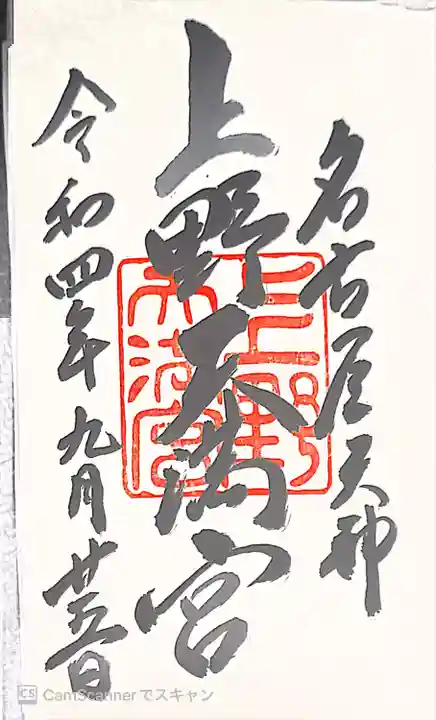 名古屋天神
上野天満宮
上野天満宮
令和四年九月廿五日
CS CamScannerでスキャン